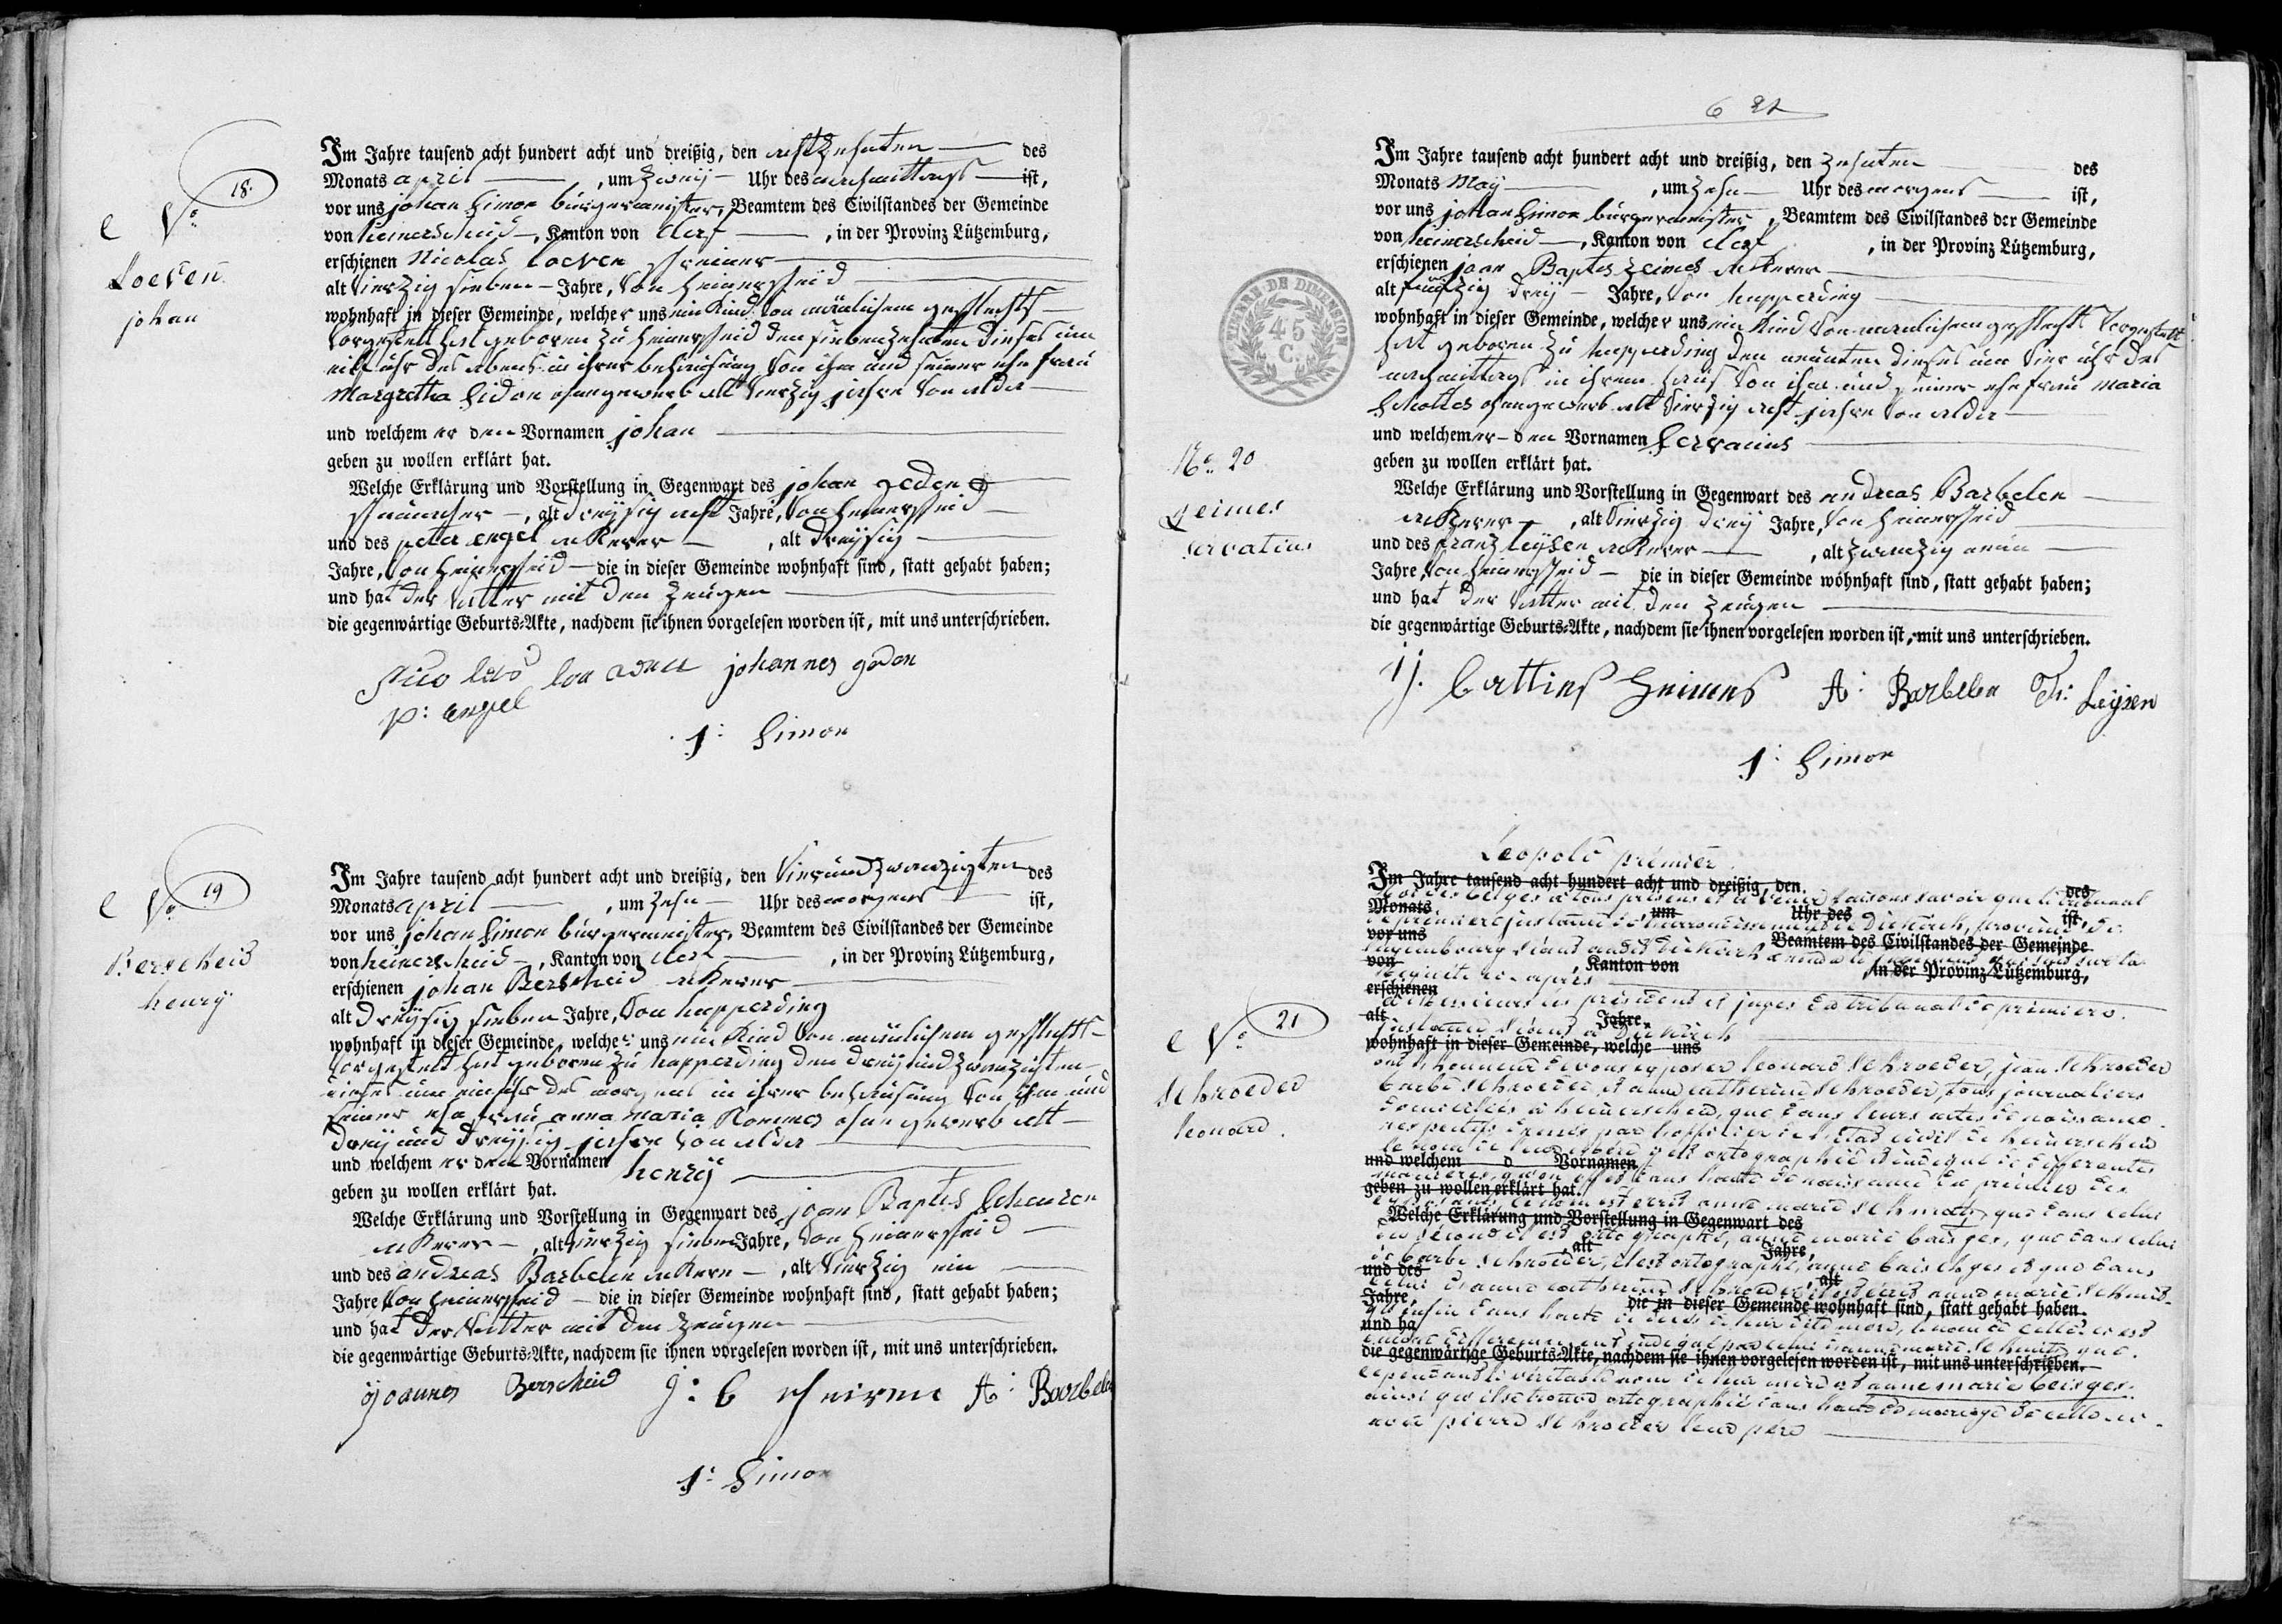 18.
No
Loeven
johan
Im Jahre tausend acht hundert acht und dreißig, den achtzehnten des
Monats april , um zweij Uhr des nachmittags ist,
vor uns johan Simon bürgermeister, Beamtem des Civilstandes der Gemeinde
von heinerscheid, Kanton von clerf , in der Provinz Lützemburg,
erschienen Nicolas Loeven schreiner
alt vierzig sieben Jahre, von heinerscheid
wohnhaft in dieser Gemeinde, welcher uns ein Kind von mänlichem geschlecht
vorgestelt hat geboren zu heinerscheid den siebenzehnten dieses um
eilf uhr des abends in ihrer behausung von ihm und seiner ehe frau
Margretha Sidon ohne gewerb alt vierzig jahre von alder
und welchem er den Vornamen johan
geben zu wollen erklärt hat.
Welche Erklärung und Vorstellung in Gegenwart des johan geden
, alt dreijsig acht Jahre, von heinerscheid
und des peter engel ackerer , alt dreijsig
Jahre, von heinerscheid die in dieser Gemeinde wohnhaft sind, statt gehabt haben;
und hat der Vatter mit den zeugen
die gegenwärtige Geburts=Akte, nachdem sie ihnen vorgelesen worden ist, mit uns unterschrieben.
johannes geden
p: engel
J: Simon
19
No
Berscheid
henrij
Im Jahre tausend acht hundert acht und dreißig, den vierundzwanzigten des
Monats april , um zehn Uhr des morgens ist,
vor uns johan Simon bürgermeister, Beamtem des Civilstandes der Gemeinde
von heinerscheid, Kanton von clerf , in der Provinz Lützemburg,
erschienen johan Berscheid ackerer
alt dreijsig sieben Jahre, von hupperding
wohnhaft in dieser Gemeinde, welcher uns ein Kind von mänlichem geschlecht
vorgestelt hat geboren zu hupperding den dreijundzwanzigten
dieses um ein uhr des morgens in ihrer behausung von ihm und
seiner ehe frau anna maria ohne gewerb alt
dreij und dreijsig jahre von alder
und welchem er den Vornamen henrij
geben zu wollen erklärt hat.
Welche Erklärung und Vorstellung in Gegenwart des joan Baptes
ackerer , alt vierzig sieben Jahre, von heinerscheid
und des andreas Barbelen ackerer , alt vierzig ein
Jahre von heinerscheid die in dieser Gemeinde wohnhaft sind, statt gehabt haben;
und hat der Vatter mit den zeugen
die gegenwärtige Geburts=Akte, nachdem sie ihnen vorgelesen worden ist, mit uns unterschrieben.
joannes Berscheid J: b A: Barbelen
J: Simon
6
TIMBRE DE DIMENSION
45
C.
No 20
Zeimes
servatius
Im Jahre tausend acht hundert acht und dreißig, den zehnten des
Monats Maij , um zehn Uhr des morgens ist,
vor uns johan Simon bürgermeister, Beamtem des Civilstandes der Gemeinde
von heinerscheid, Kanton von clerf , in der Provinz Lützemburg,
erschienen joan Baptes Zeimes ackerer
alt fünfzig dreij Jahre, von hupperding
wohnhaft in dieser Gemeinde, welcher uns ein Kind von manlichem geschlecht vorgestelt
hat geboren zu hupperding den neunten dieses um vier uhr des
nachmittags in ihrem haus von ihm und seiner ehe frau maria
Schottes ohne gewerb alt vierzig acht jahre von alder
und welchem er den Vornamen Servatius
geben zu wollen erklärt hat.
Welche Erklärung und Vorstellung in Gegenwart des andreas Barbelen
ackerer , alt vierzig dreij Jahre, von heinerscheid
und des franz leijsen ackerer , alt zwanzig neun
Jahre, von heinerscheid die in dieser Gemeinde wohnhaft sind, statt gehabt haben;
und hat der Vatter mit den zeugen
die gegenwärtige Geburts=Akte, nachdem sie ihnen vorgelesen worden ist, mit uns unterschrieben.
A: Barbelen Fr: Leijsen
J: Simon
21
No
Schroeder
leonard.
Leopold premier
Im Jahre tausend acht hundert acht und dreißig, den des
Roi des belges a tous presens et a venir faisons savoir que le tribunal
Monats um Uhr des ist,
de premiere instance de l'arrondissement de Diekirch, province de
vor uns Beamtem des Civilstandes der Gemeinde
luxembourg séant audit Diekirch a rendu le jugement suivant sur la
von , Kanton von in der Provinz Lützemburg,
requete ci-apres
erschienen
a messieurs les president et juges du tribunal de premiere
alt Jahre,
instance séant a Diekirch
wohnhaft in dieser Gemeinde, welche uns
ont l'honneur de vous exposer leonard Schroeder, jean Schroeder
barbe Schroeder, et anne catherine Schroeder, tous journaliers
domiciliés a heinerscheid, que dans leurs actes de naissance
respectifs dressés par l'officier de l'état civil de heinerscheid
le nom de leur mere est ortographié et indiqué de differentes
und welchem d Vornamen
geben zu wollen erklärt hat.
manieres, qu'en effet dans l'acte de naissance du premier des
exposants le nom est ecrit anne marie que dans celui
Welche Erklärung und Vorstellung in Gegenwart des
du second il est ortographié, anne marie que dans celui
alt Jahre,
de barbe Schroeder, il est ortographié, anne et que dans
und des
celui d'anne catherine Schroeder il est ecrit anne marie
alt
Jahre, die in dieser Gemeinde wohnhaft sind, statt gehabt haben.
und ha
die gegenwärtige Geburts=Akte, nachdem sie ihnen vorgelesen worden ist, mit uns unterschrieben.
cependant le veritable nom de leur mere est anne marie beisges.
ainsi qu'il se trouve ortographié dans l'acte de mariage de celle-ci
avec pierre Schroeder leur pere